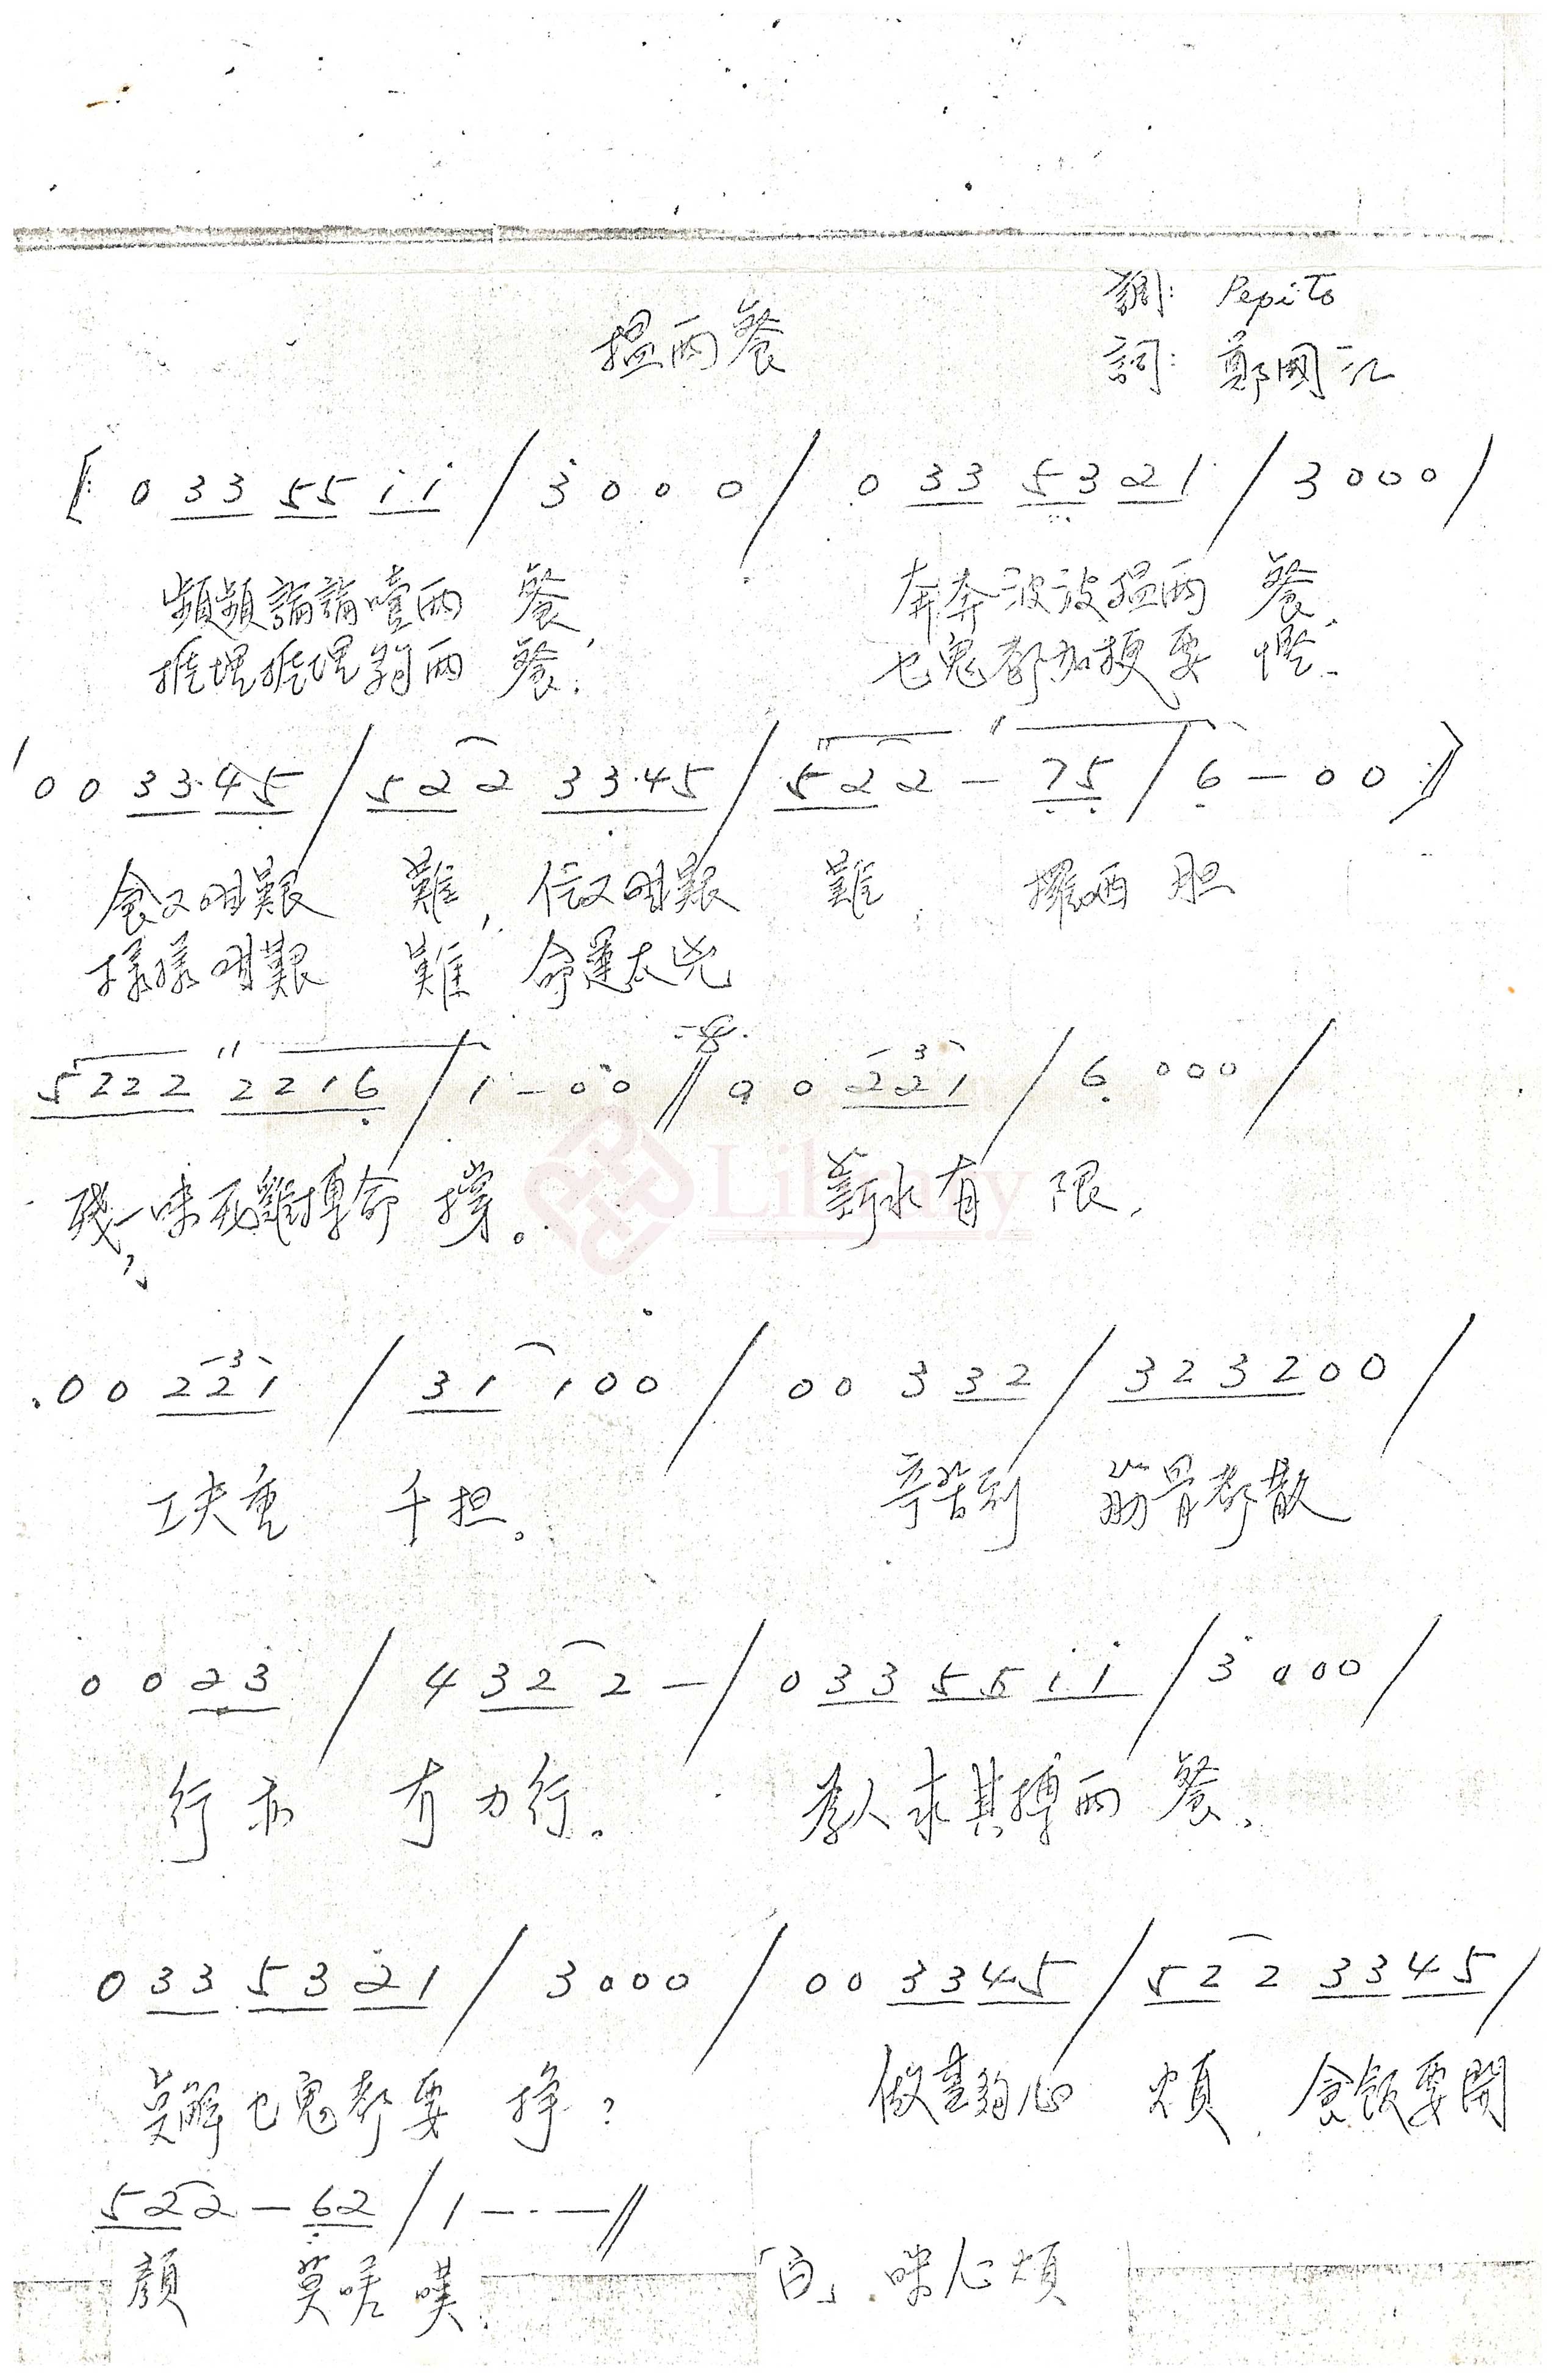 搵両餐
調: Pepito
詞: 鄭國江
0 33 55 i i / 3 0 0 0 / 0 33 53 21 / 3 0 0 0 /
頻頻譸譸噎両 餐, 奔奔波波搵両 餐,
推埋推埋夠両 餐. 乜鬼都加梗要 慳.
0 0 33 45 / 52 2 33 45 / 52 2 - 75 / 6 - 0 0
食又咁艱 難, 住又咁艱 難, 攞両胆
樣樣咁艱 難 命運太兇
5222 2216 / 1 - 0 0 // 0 0 221 / 6 0 0 0 /
殘,一味死雞搏命 撐。 薪水有 限,
Library
0 0 221 / 31 1 0 0 / 0 0 3 32 / 3232 0 0 /
工夫重 千担。 辛苦到 筋骨都散
0 0 23 / 4 32 2 - / 0 33 55 i i / 3 0 0 0 /
行亦 冇力行。 為人求其搏両 餐,
0 33 53 21 / 3 0 0 0 / 0 0 33 45 / 52 2 33 45 /
莫解乜鬼都要 掙? 做書夠心 煩, 食飯要開
52 2 - 62 / 1 - - - //
顏 莫嗟嘆. 「白」咪心煩